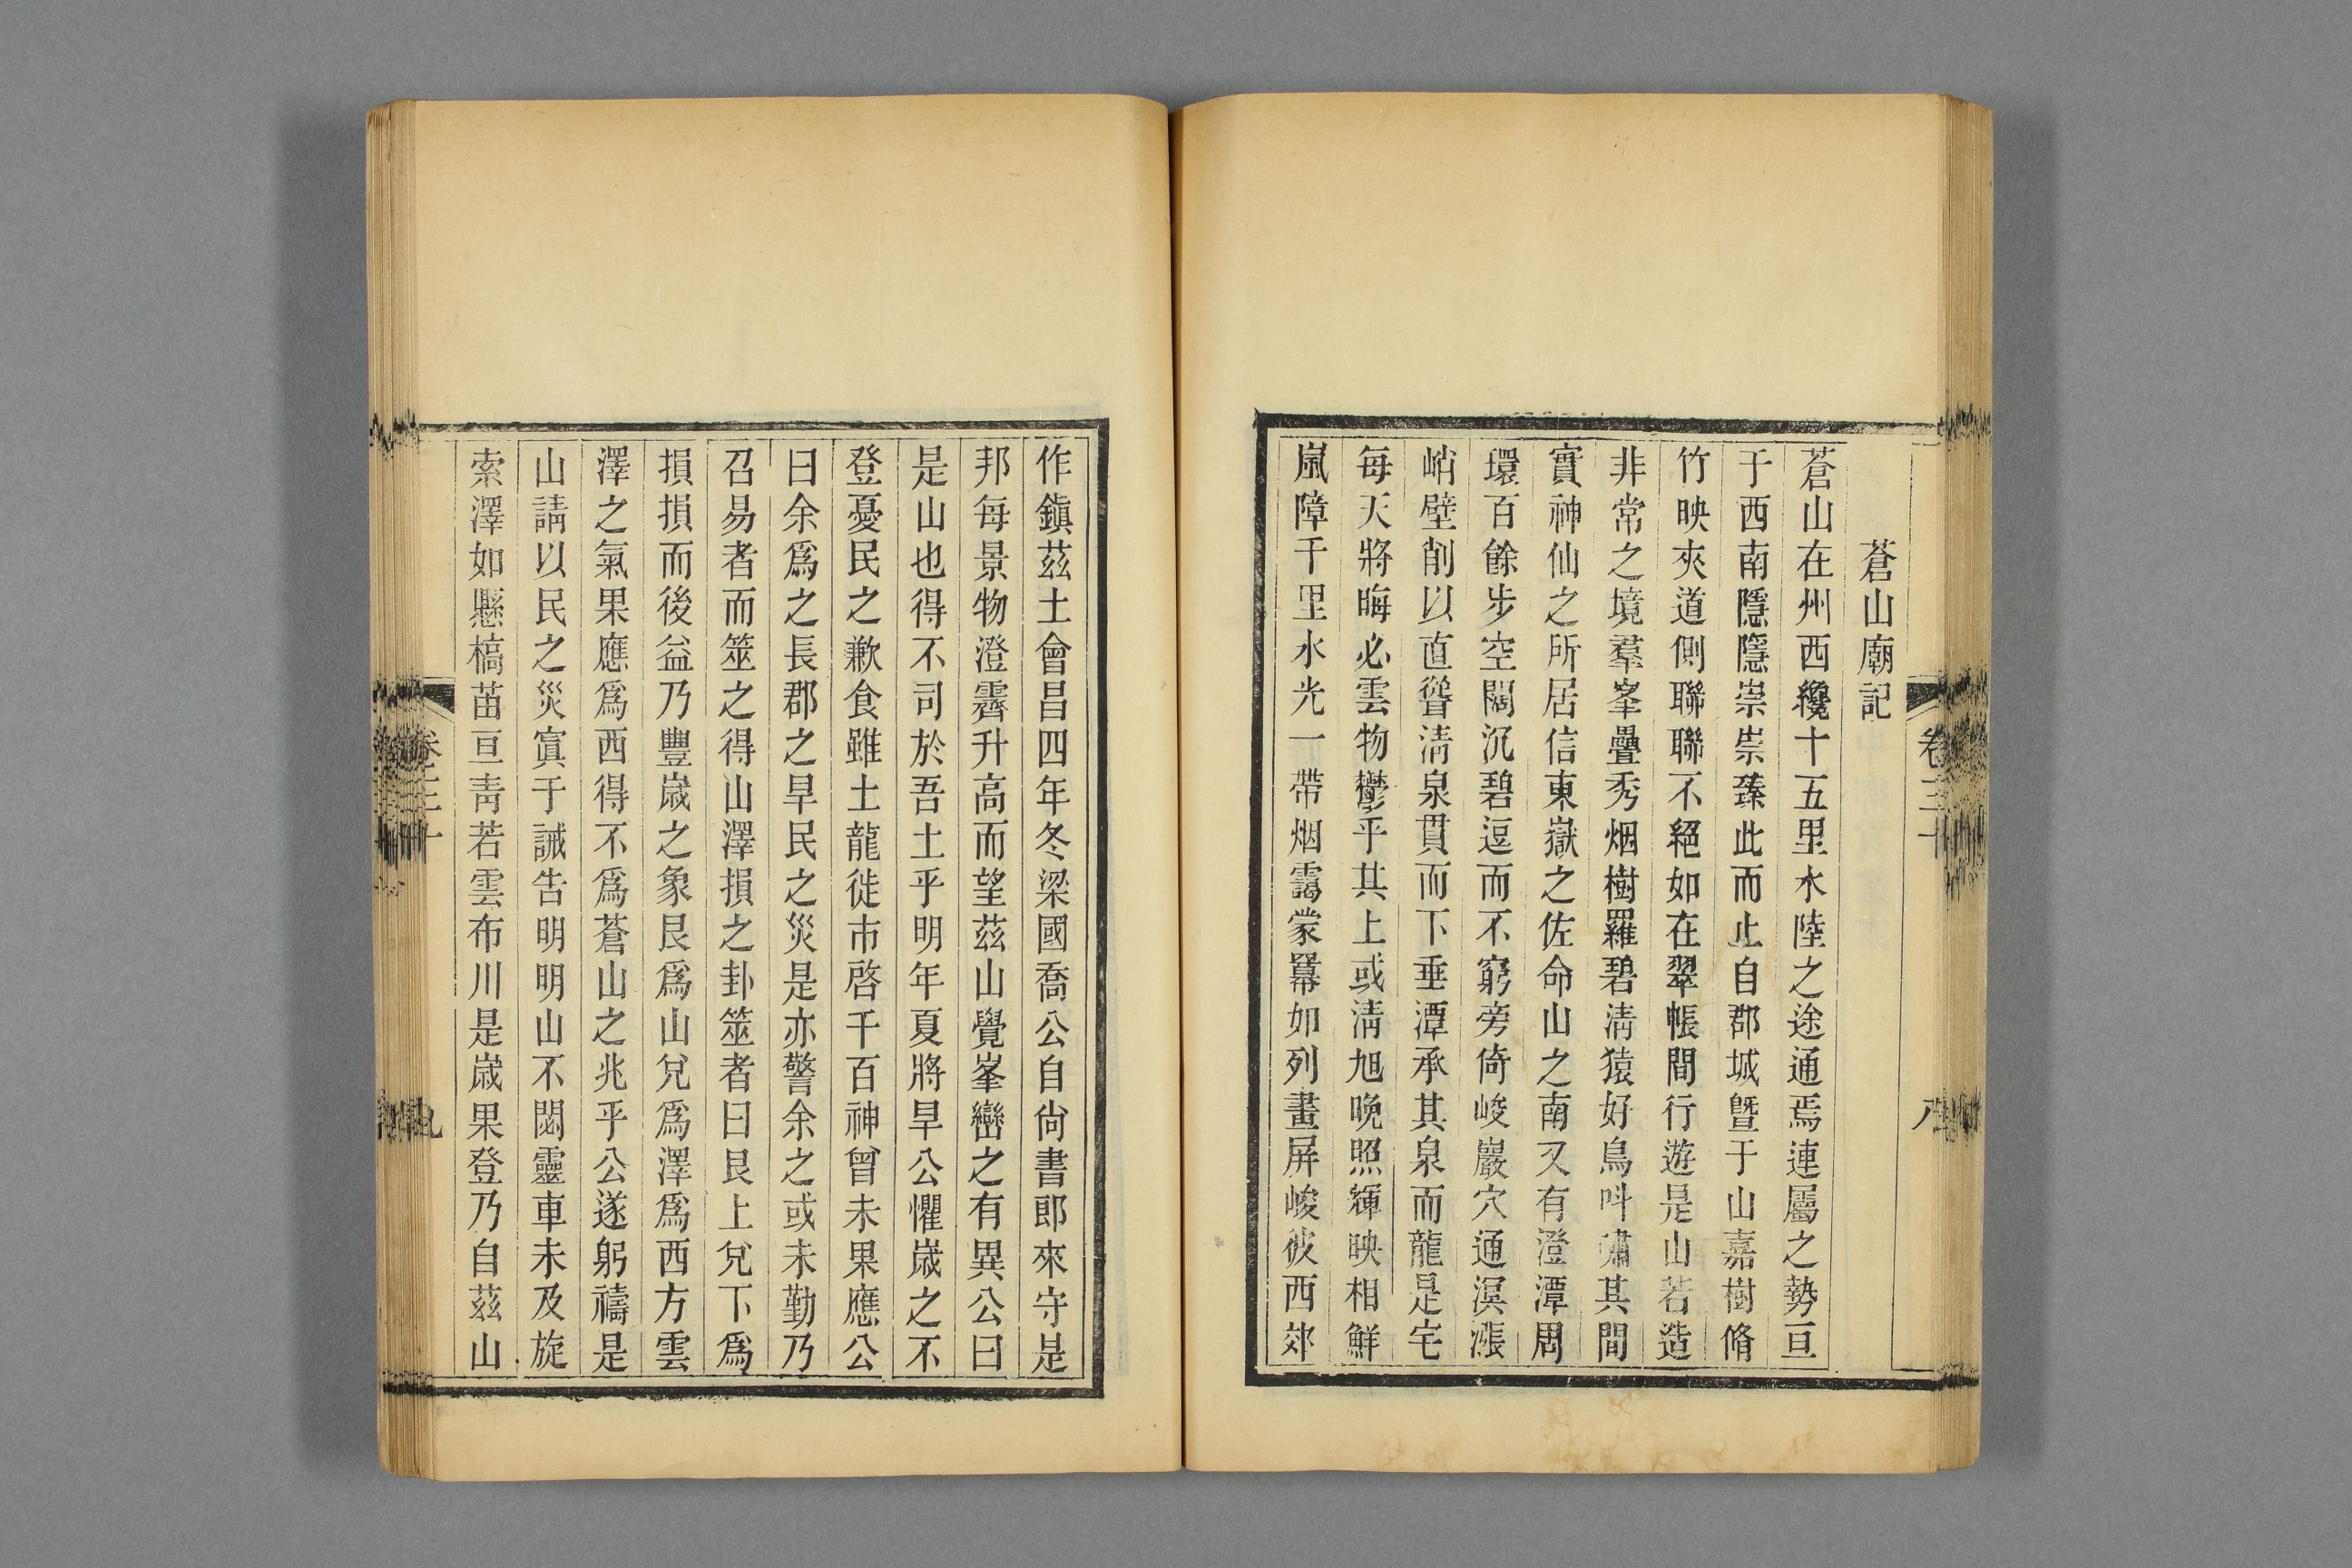 卷三十
八
蒼山廟記
蒼山在州西纔十五里水陸之途通焉連屬之勢亘
于西南隱隱崇崇臻此而止自郡城曁于山嘉樹脩
竹映夾道側聯聯不絕如在翠帳間行遊是山若造
非常之境羣峯疊秀烟樹羅碧淸猿好鳥呌嘯其間
實神仙之所居信東嶽之佐命山之南又有澄潭周
環百餘步空闊沉碧逗而不窮旁倚峻巖穴通溟漲
峭壁削以直聳淸泉貫而下垂潭承其泉而龍是宅
每天將晦必雲物鬱乎其上或淸旭晚照輝映相鮮
嵐障千里水光一帶烟靄蒙羃如列畫屏峻彼西郊
作鎭茲土會昌四年冬梁國喬公自尙書郎來守是
邦每景物澄霽升高而望茲山覺峯巒之有異公曰
是山也得不司於吾土乎明年夏將旱公懼歲之不
登憂民之歉食雖土龍徙市啓千百神曾未果應公
曰余爲之長郡之旱民之災是亦警余之或未勤乃
召易者而筮之得山澤損之卦筮者曰艮上兌下爲
損損而後益乃豐歲之象艮爲山兌爲澤爲西方雲
澤之氣果應爲西得不爲蒼山之兆乎公遂躬禱是
山請以民之災寘于誠告明明山不閟靈車未及旋
索澤如懸槁苗亘靑若雲布川是歲果登乃自茲山
卷三十
九